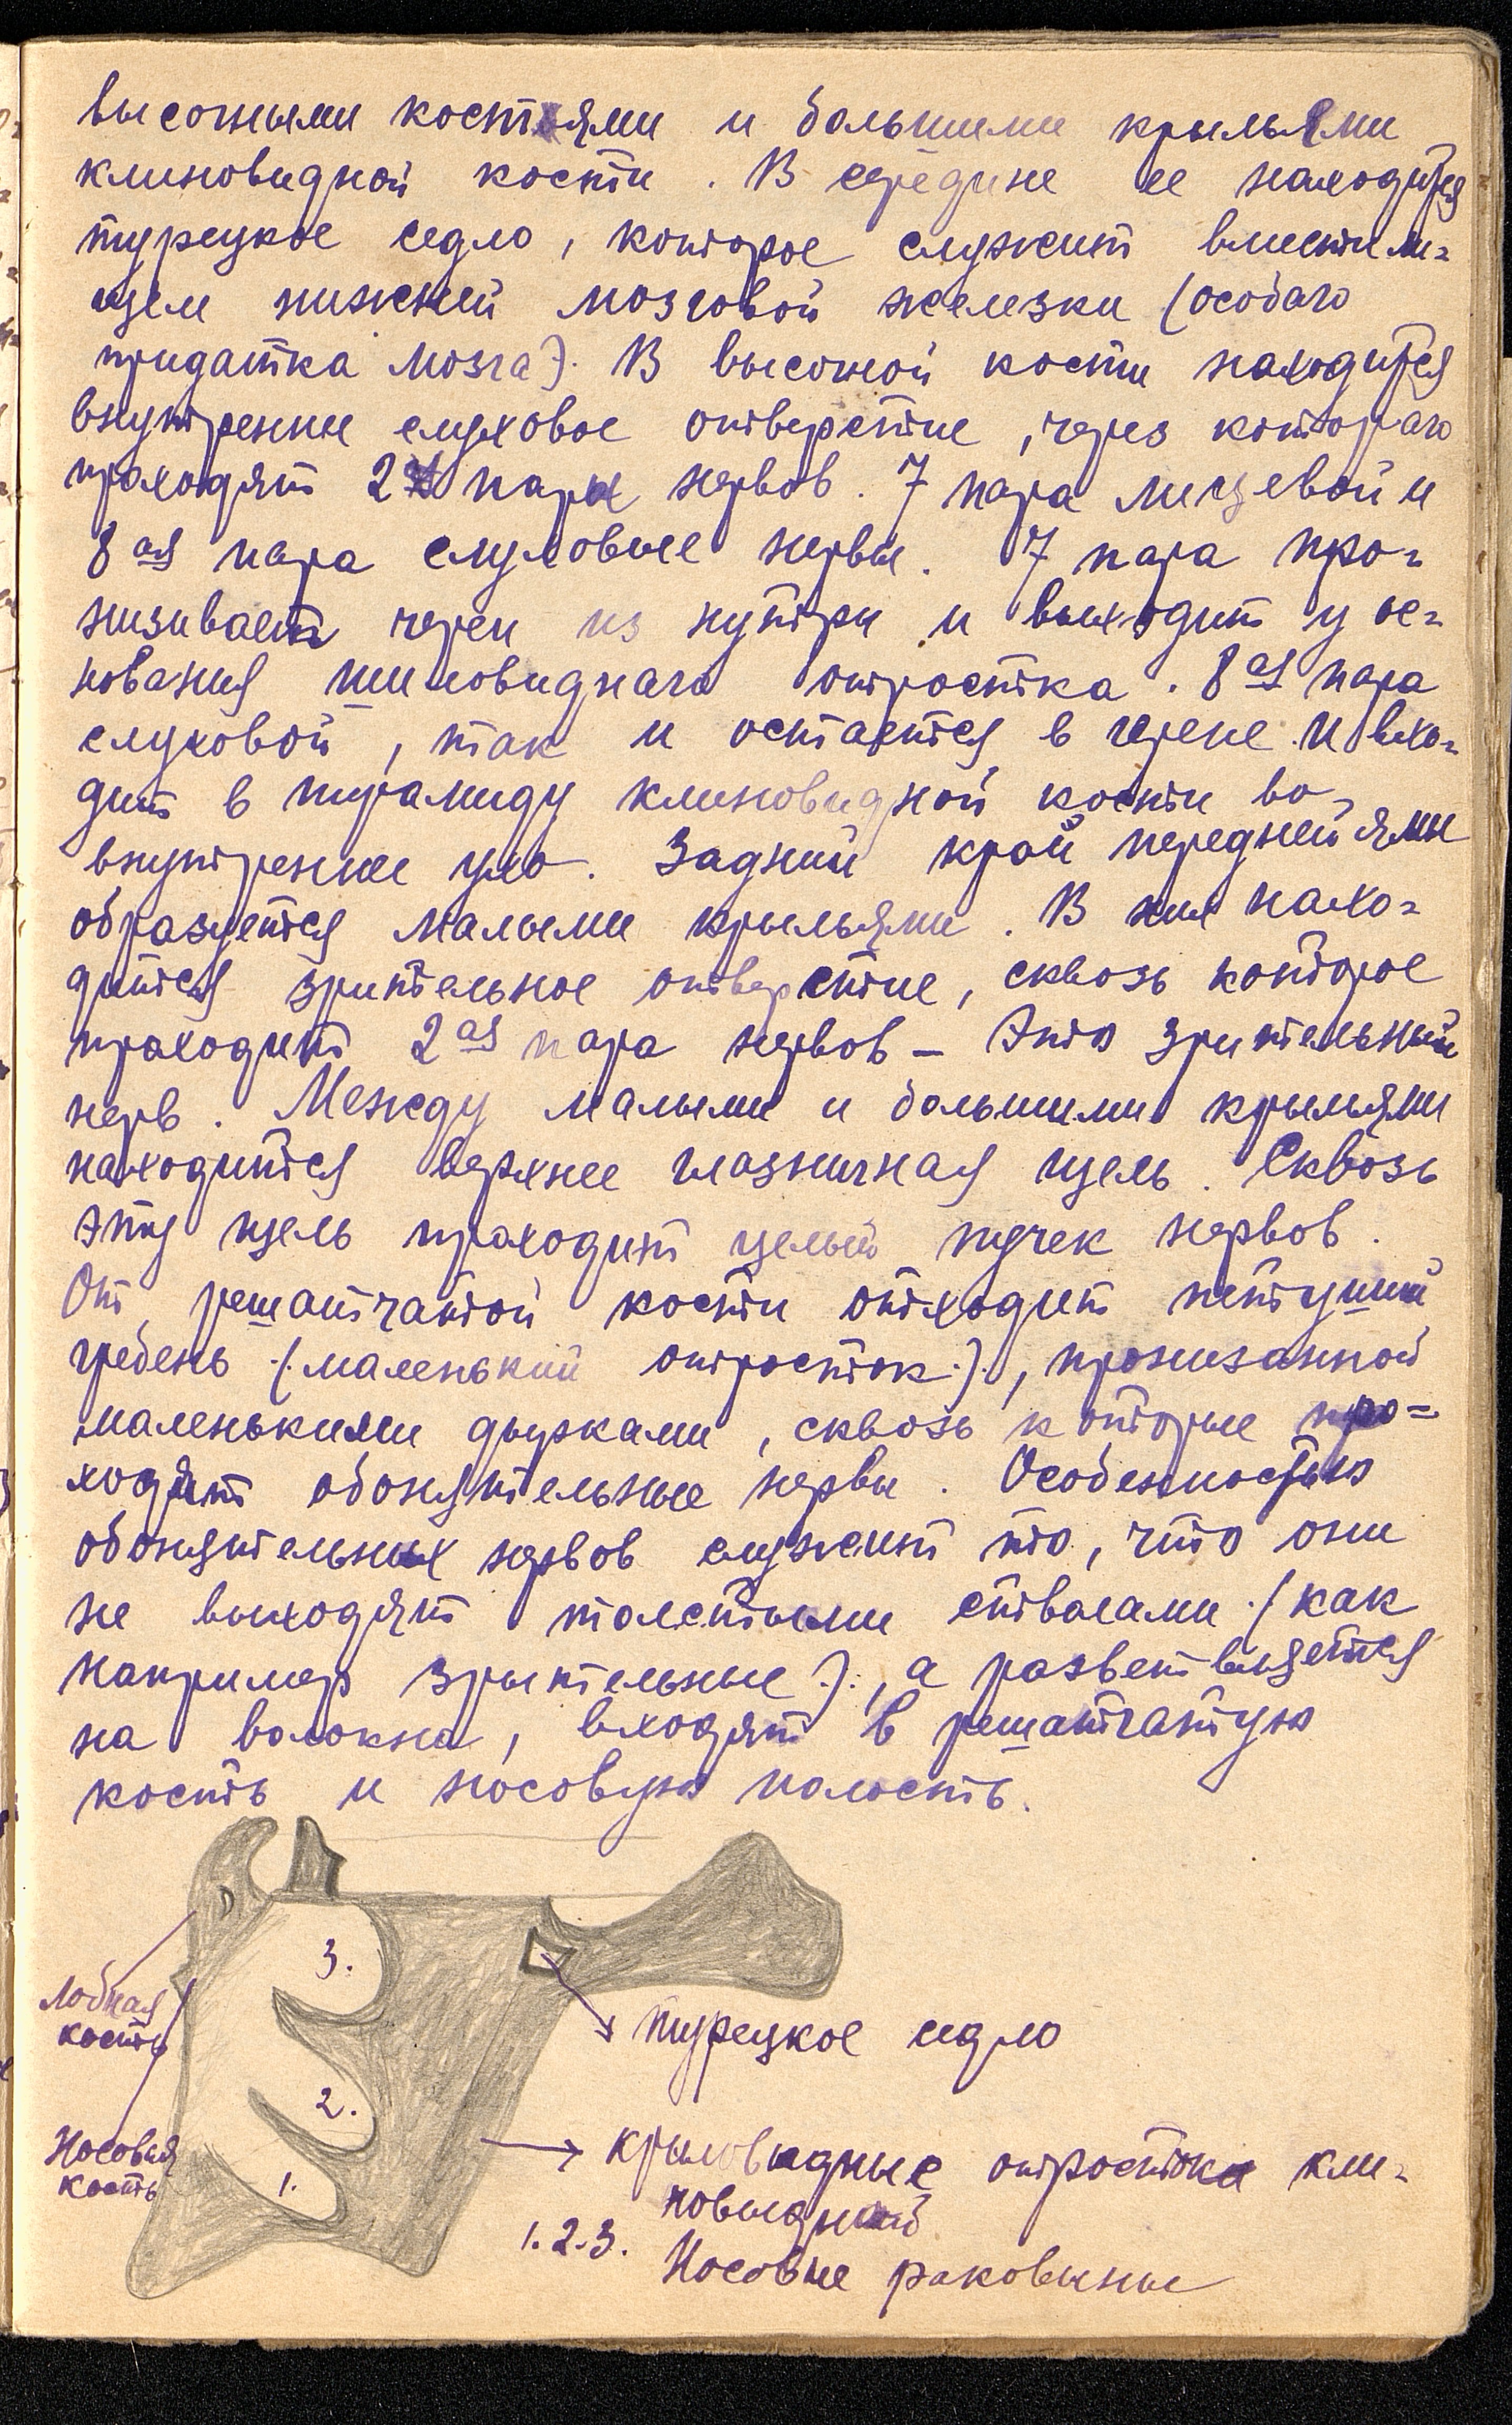 высочными костями и большими крыльями
клиновидной кости. В середине ее находится
турецкое седло, которое служит вместили-
щем нижней мозговой железки (особаго
придатка мозга). В высочной кости находится
внутренние слуховое отверстие, через котораго
проходят 2 пары нервов. 7 пара лицевой и
8ая пара слуховые нервы. 7 пара про-
низивает череп из нутри и выходит у ос-
нования шиловиднаго отростка. 8ая пара
слуховой, так и остается в черепе и вхо-
дит в пирамиду клиновидной кости во-
внутреннее ухо. Задний край передней ямы
образуется малыми крыльями. В них нахо-
дится зрительное отверстие, сквозь которое
проходит 2ая пара нервов – это зрительный
нерв. Между малыми и большими крыльями
находится верхнее глазничная щель. Сквозь
эту щель проходит целый пучек нервов.
От решатчатой кости отходит петуший
гребень (маленький отросток), пронизанной
маленькими дырками, сквозь которые про-
ходят обонятельные нервы. Особенностью
обонятельных нервов служит то, что они
не выходят толстыми стволами (как
например зрительные), а разветвляется
на волокна, входят в решатчатую
кость и носовую полость.
3.
Лобная
кость
турецкое седло
2.
Носовая
кость
1.
крыловидные отростки кли-
новидной
1.2.3. Носовые раковины